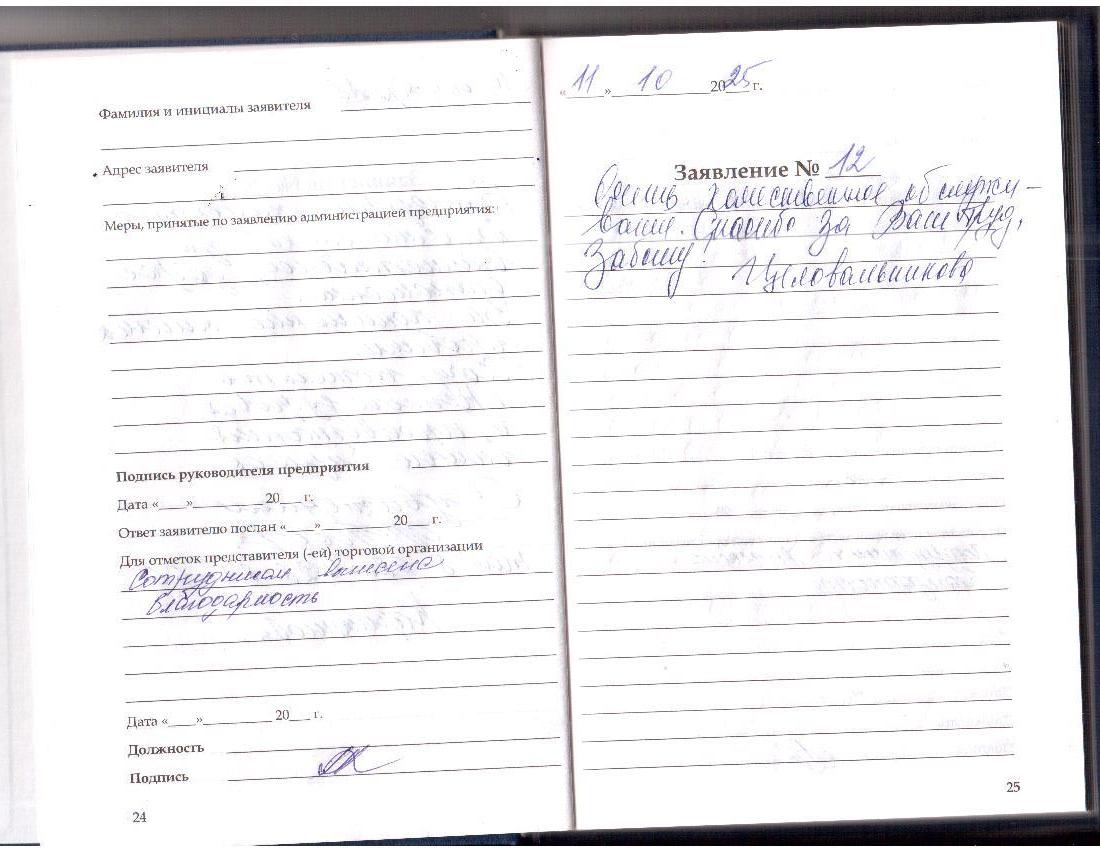 Фамилия и инициалы заявителя
Адрес заявителя
Меры, принятые по заявлению администрацией предприятия:
Подпись руководителя предприятия
Дата «____»__________ 20___ г.
Ответ заявителю послан «____»__________ 20___ г.
Для отметок представителя (-ей) торговой организации
Сотрудникам вынесена
благодарность
Дата «____»__________ 20___ г.
Должность
Подпись
24
«11» 10 2025 г.
Заявление № 12
Очень качественное обслужи-
вание. Спасибо за Ваш труд,
заботу.
Целовальникова
25